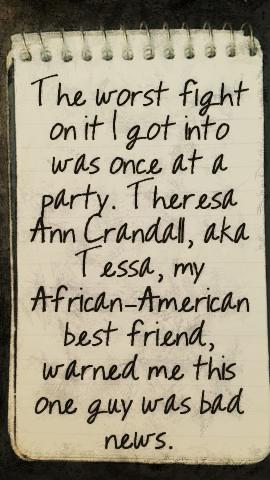 The worst fight
on it I got into
was once at a
party. Theresa
Ann Crandall, aka
Tessa, my
African-American
best friend,
warned me this
one guy was bad
news.